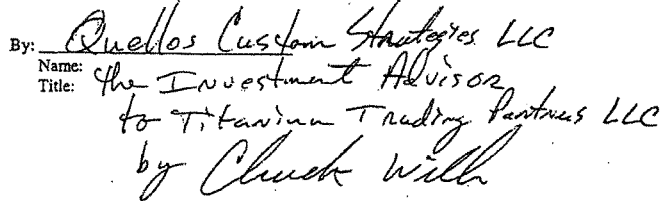 By: Quellos Custom Strategies LLC
Name:
Title: the Investment Advisor
to Titanium Trading Partners LLC
by Chuck